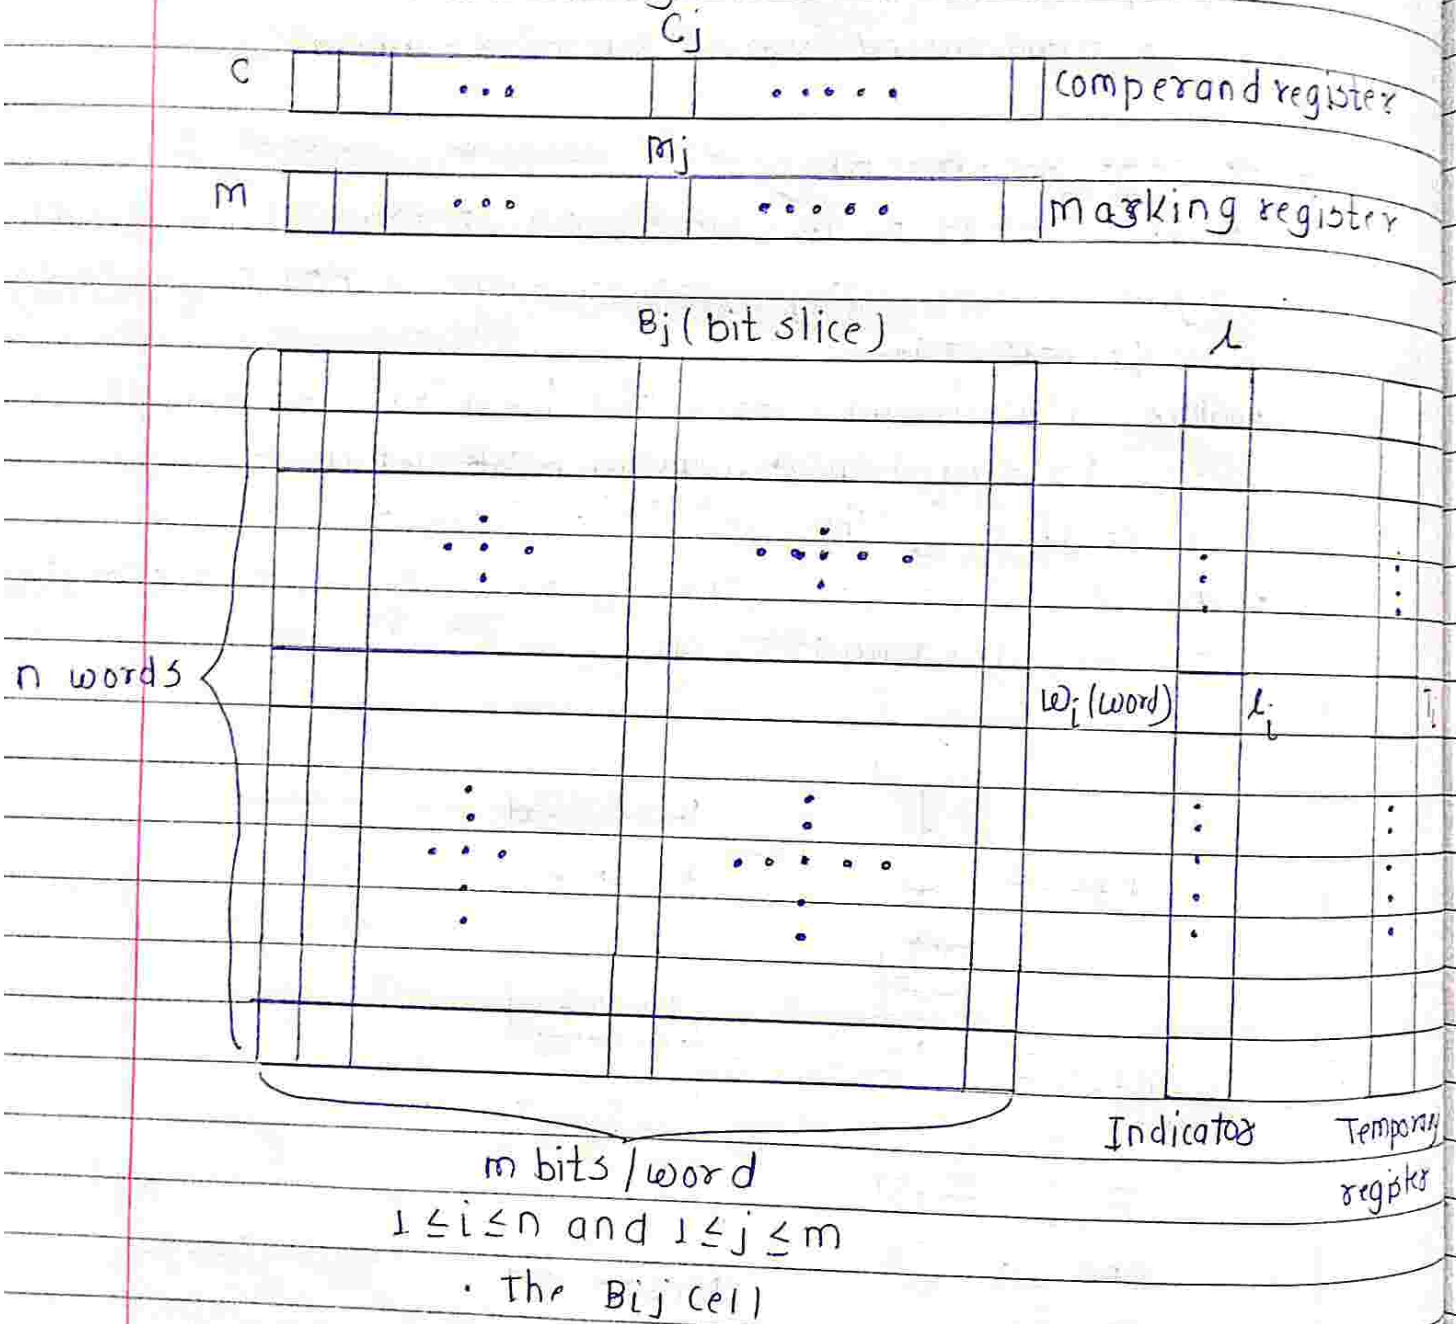 Cj
C comperand register
Mj
M masking register
Bj (bit slice) l
n words wi (word) li Ti
Indicator Temporary
register
m bits / word
1 ≤ i ≤ n and 1 ≤ j ≤ m
. The Bij cell